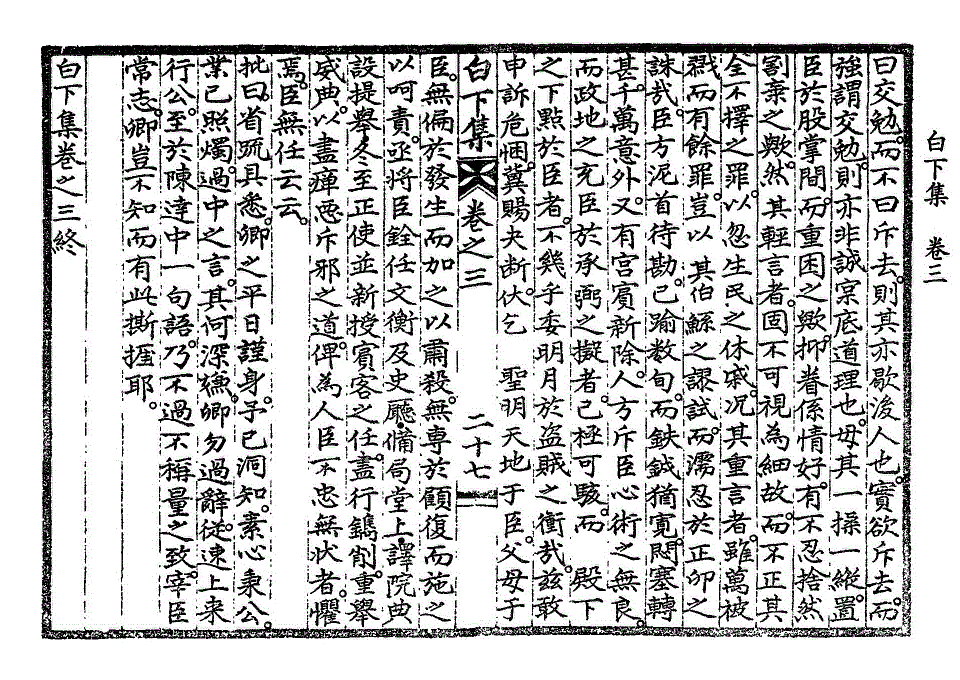 白下集　卷三
曰交勉。而不曰斥去。則其亦歇後人也。實欲斥去。而
強謂交勉。則亦非誠宲底道理也。毋其一操一縱。置
臣於股掌間。而重困之歟。抑眷係情好。有不忍捨然
割棄之歟。然其輕言者。固不可視為細故。而不正其
全不擇之罪。以忽生民之休戚。况其重言者。雖萬被
戮。而有餘罪。豈以其伯鯀之謬試。而濡忍於正卯之
誅哉。臣方泥首待勘。已踰数旬。而鈇鉞猶寬。悶塞轉
甚。千萬意外。又有宮賓新除。人方斥臣心術之無良。
而政地之充臣於承弼之擬者。已極可駭。而　殿下
之下點於臣者。不幾乎委明月於盗賊之衝哉。玆敢
申訴危悃。冀賜夬断。伏乞　聖明天地于臣。父母于
白下集　卷之三　二十七
臣。無偏於發生而加之以肅殺。無專於顧復而施之
以呵責。亟将臣銓任文衡及史廳備局堂上。譯院典
設提舉。冬至正使並新授賓客之任。盡行鐫削。重舉
威典。以盡癉惡斥邪之道。俾為人臣不忠無状者。懼
焉。臣無任云云。
批曰。省疏具悉。卿之平日謹身。予已洞知。素心秉公。
業已照燭。過中之言。其何深嫌。卿勿過辭。従速上来
行公。至於陳達中一句語。乃不過不稱量之致。宰臣
常志。卿豈不知而有此撕捱耶。
白下集卷之三終